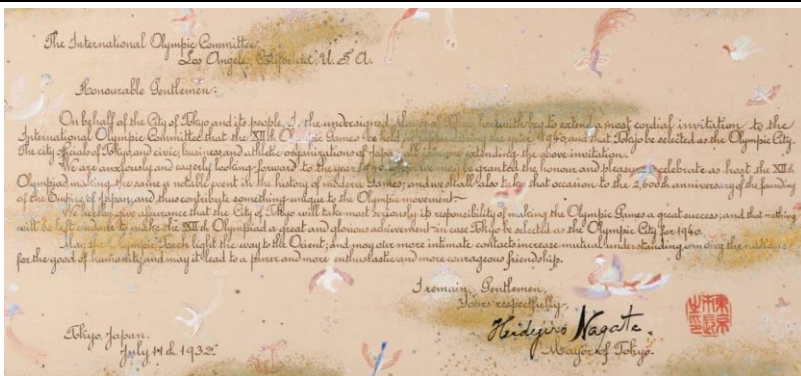 The International Olympic Committee,
Los Angeles, California, U. S. A.
Honourable Gentlemen:
On behalf of the City of Tokyo and its people, I, the undersigned, Mayor of Tokyo, herewith beg to extend a most cordial invitation to the
International Olympic Committee that the XIIth Olympic Games be held in 1940, and that Tokyo be selected as the Olympic City.
The city officials of Tokyo, and civic, business and athletic organizations of Japan extending the above invitation.
We are anxiously and eagerly looking forward to the year be granted the honour and pleasure to celebrate as host the XIIth
Olympiad, making the same a notable event in the history of modern Games; and we shall also take that occasion to the 2,600th anniversary of the founding
of the Empire of Japan, and thus contribute something unique to the Olympic movement.
We hereby give assurance that the City of Tokyo will take most seriously its responsibility of making the Olympic Games a great success; and that nothing
will be left undone to make the XIIth Olympiad a great and glorious achievement in case Tokyo be selected as the Olympic City for 1940.
May the Olympic Torch light the way to the Orient; and may our more intimate contacts increase mutual understanding among the nations
for the good of humanity, and may it lead to a purer and more enthusiastic and more courageous friendship.
I remain, Gentlemen,
Yours respectfully,
Hidejiro Nagata.
Mayor of Tokyo.
東京市長之印
Tokyo, Japan.
July 14th 1932.